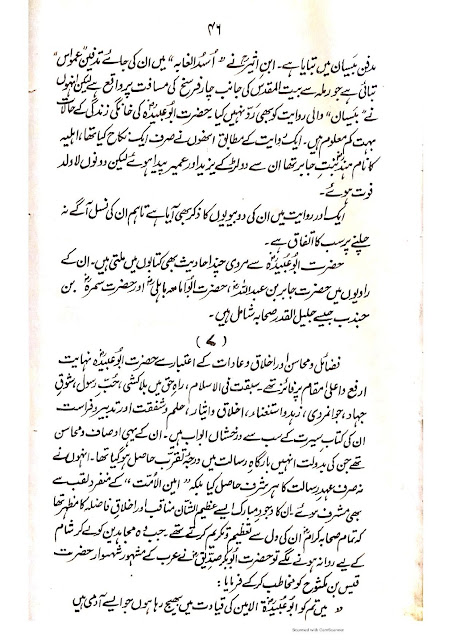 ۴۶
مدفن بَیسان میں بتایا ہے۔ ابن اثیرؒ نے "اُسُد الغابہ" میں ان کی جائے تدفین "عمواس"
بتائی ہے جو رملہ سے بیت المقدس کی جانب چار فرسخ کی مسافت پر واقع ہے لیکن انہوں
نے "بَیسان" والی روایت کو بھی رَد نہیں کیا۔ حضرت ابُو عُبیدہؓ کی خانگی زندگی کے حالات
بہت کم معلوم ہیں۔ ایک روایت کے مطابق انھوں نے صرف ایک نکاح کیا تھا، اہلیہ
کا نام ہند بنتِ جابر تھا ان سے دو لڑکے یزید اور عمیر پیدا ہوئے لیکن دونوں لا ولد
فوت ہوئے۔
ایک اور روایت میں ان کی دو بیویوں کا ذکر بھی آیا ہے تاہم ان کی نسل آگے نہ
چلنے پر سب کا اتفاق ہے۔
حضرت ابُو عُبَیدہؓ سے مروی چند احادیث بھی کتابوں میں ملتی ہیں۔ ان کے
راویوں میں حضرت جابر بن عبداللہؓ، حضرت ابُو امامہ باہلیؓ اور حضرت سمرہؓ بن
جندب جیسے جلیل القدر صحابہ شامل ہیں۔
(۷)
فضائل و محاسن اور اخلاق و عادات کے اعتبار سے حضرت ابُو عبیدہؓ نہایت
ارفع و اعلیٰ مقام پر فائز تھے۔ سبقت فی الاسلام، راہِ حق میں بلاکشی، حُبِّ رسول، شوقِ
جہاد، جوانمردی، زہد و استغناء، اخلاق و ایثار، حلم و شفقت اور تدبیر و فراست
ان کی کتابِ سیرت کے سب سے درخشاں ابواب ہیں۔ ان کے یہی اوصاف و محاسن
تھے جن کی بدولت انہیں بارگاہِ رسالت میں درجۂ تقرب حاصل ہو گیا تھا۔ انہوں نے
نہ صرف عہدِ رسالت کا ہر شرف حاصل کیا بلکہ "امین الامت" کے منفرد لقب سے
بھی مشرف ہوئے۔ ان کا وجودِ مبارک ایسے عظیم الشان مناقب اور اخلاقِ فاضلہ کا مظہر تھا
کہ تمام صحابہ کرامؓ ان کی دل سے تعظیم و تکریم کرتے تھے۔ جب وہ مجاہدین کو لے کر شام
کے لیے روانہ ہونے لگے تو حضرت ابُو بکر صدیقؓ نے عرب کے مشہور شہسوار حضرت
قیس بن مکشوح کو مخاطب کر کے فرمایا :
"میں تم کو ابو عبیدہؓ الامین کی قیادت میں بھیج رہا ہوں جو ایسے آدمی ہیں
Scanned with CamScanner